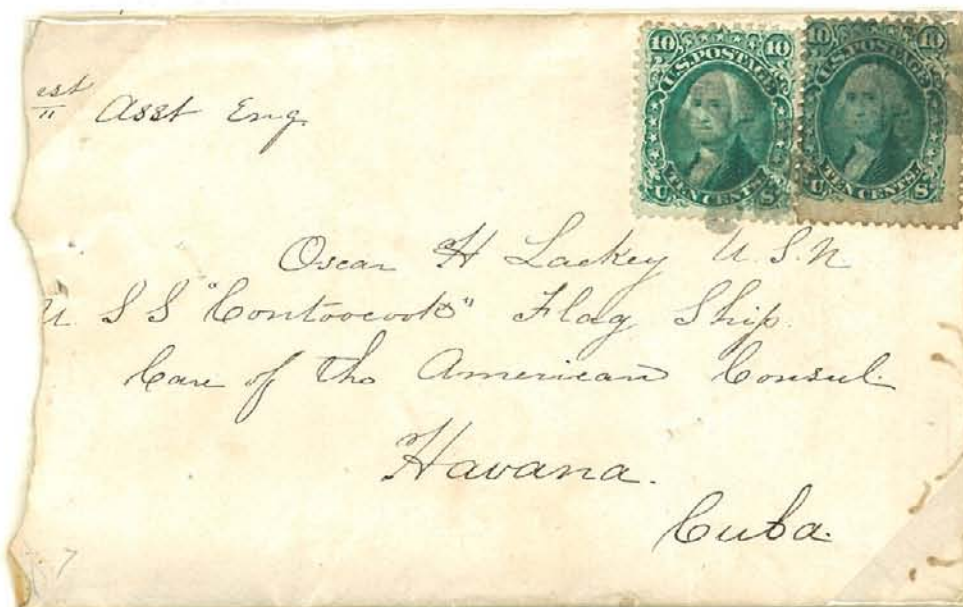 10 10
U.S. POSTAGE
TEN CENTS
U S
10 10
U.S. POSTAGE
TEN CENTS
U S
est Asst Eng.
"
Oscar H Lackey U.S.N
U S S "Contoocook" Flag Ship.
Care of the American Consul.
Havana.
Cuba.
7